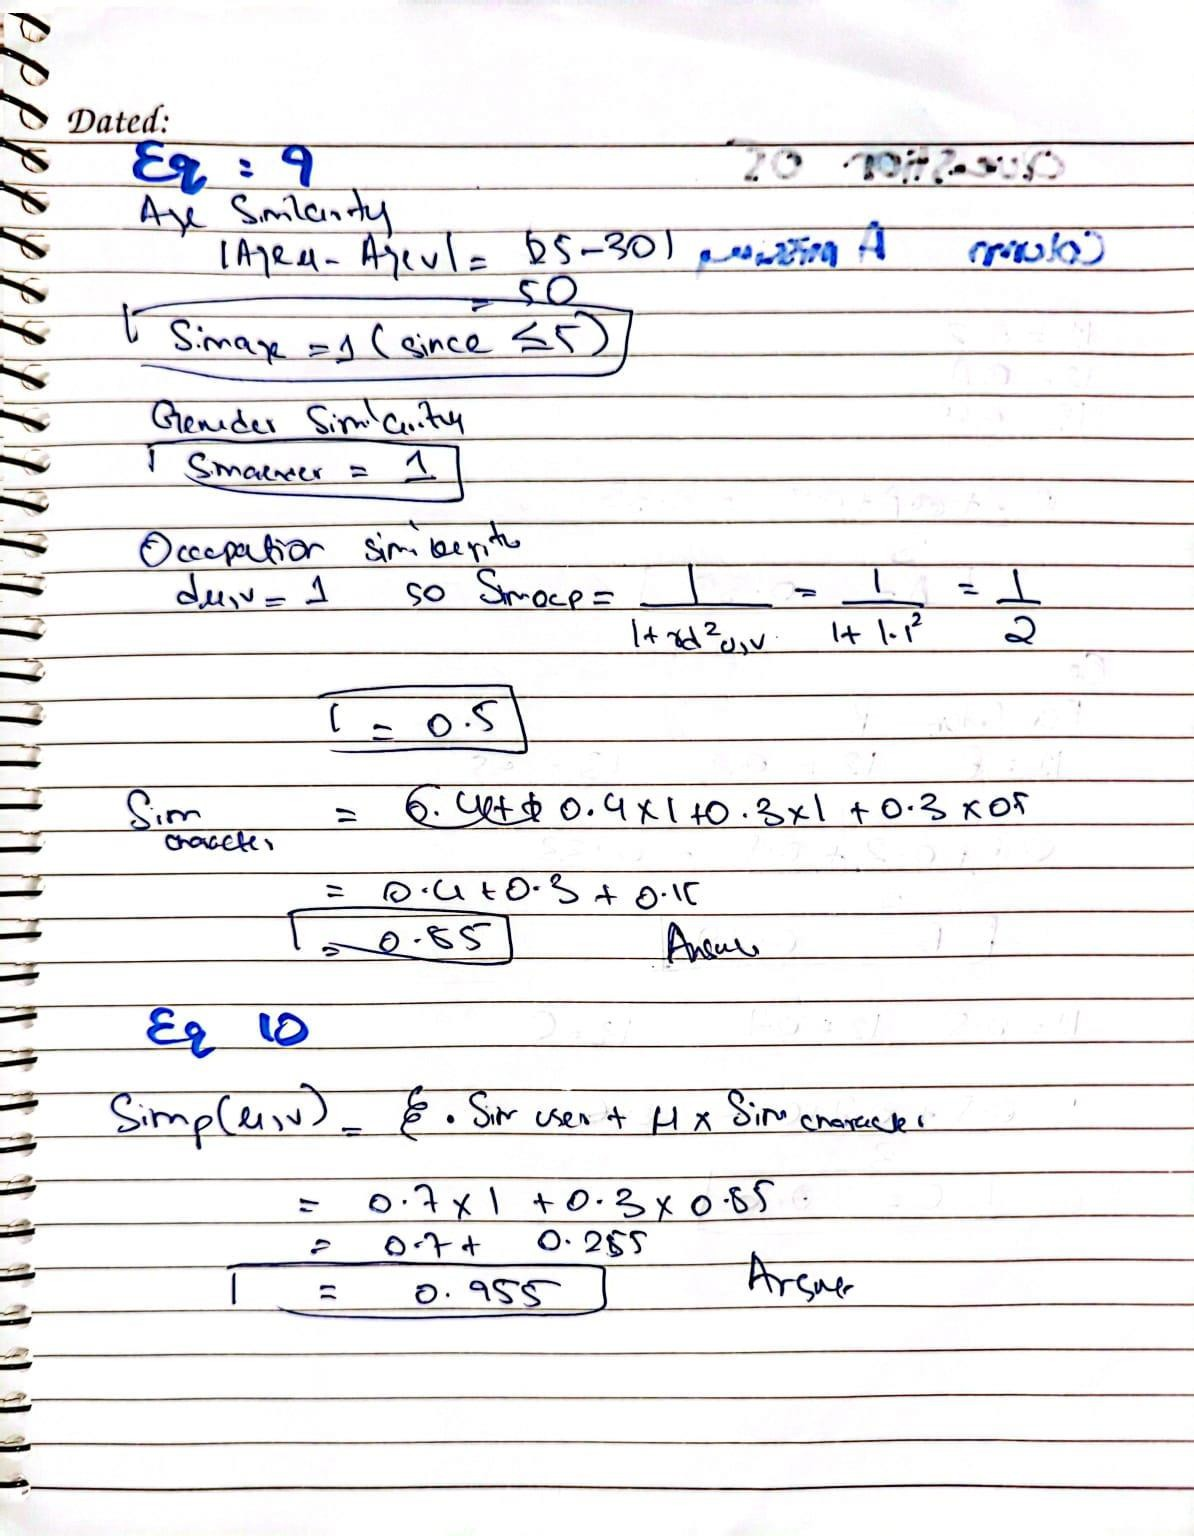 Dated:
Eq : 9
Age Similarity
|Ageu - Agev| = |25-30|
= 50
Simage = 1 (since ≤5)
Gender Similarity
Simgender = 1
Occupation similarity
du,v = 1 so Simocp = 1/(1+αd²u,v) = 1/(1+1.1²) = 1/2
= 0.5
Sim character = 0.4×1+0.3×1+0.3×05
= 0.4+0.3+0.15
= 0.85 Answer
Eq 10
Simp(u,v) = ξ . Sim user + μ × Sim character
= 0.7×1 +0.3×0.85
= 0.7+ 0.255
= 0.955 Answer